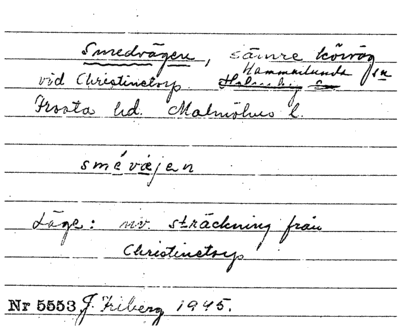 Smedvägen, sämre körväg
vid Christinetorp. Hammarlunda sn
Frosta hd. Malmöhus l.
smévæjen
Läge: nv. sträckning från
Christinetorp
Nr 5553 J. Friberg 1945.